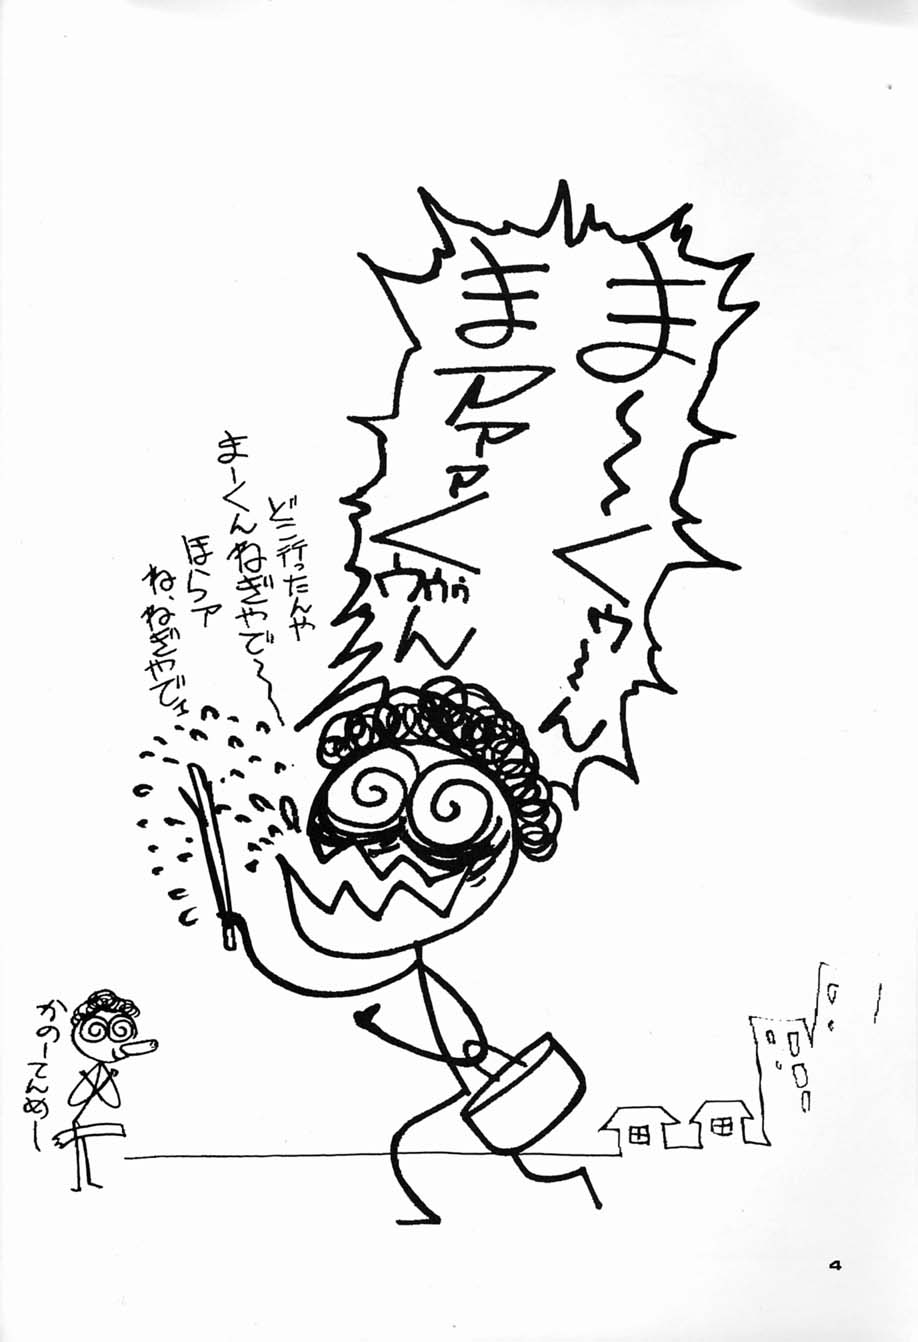 ま～くゥ～ん
まアァァくウゥゥん
どこ行ったんや
まーくんねぎやで～
ほらァ
ね、ねぎやでェ
かのーてんめー
4